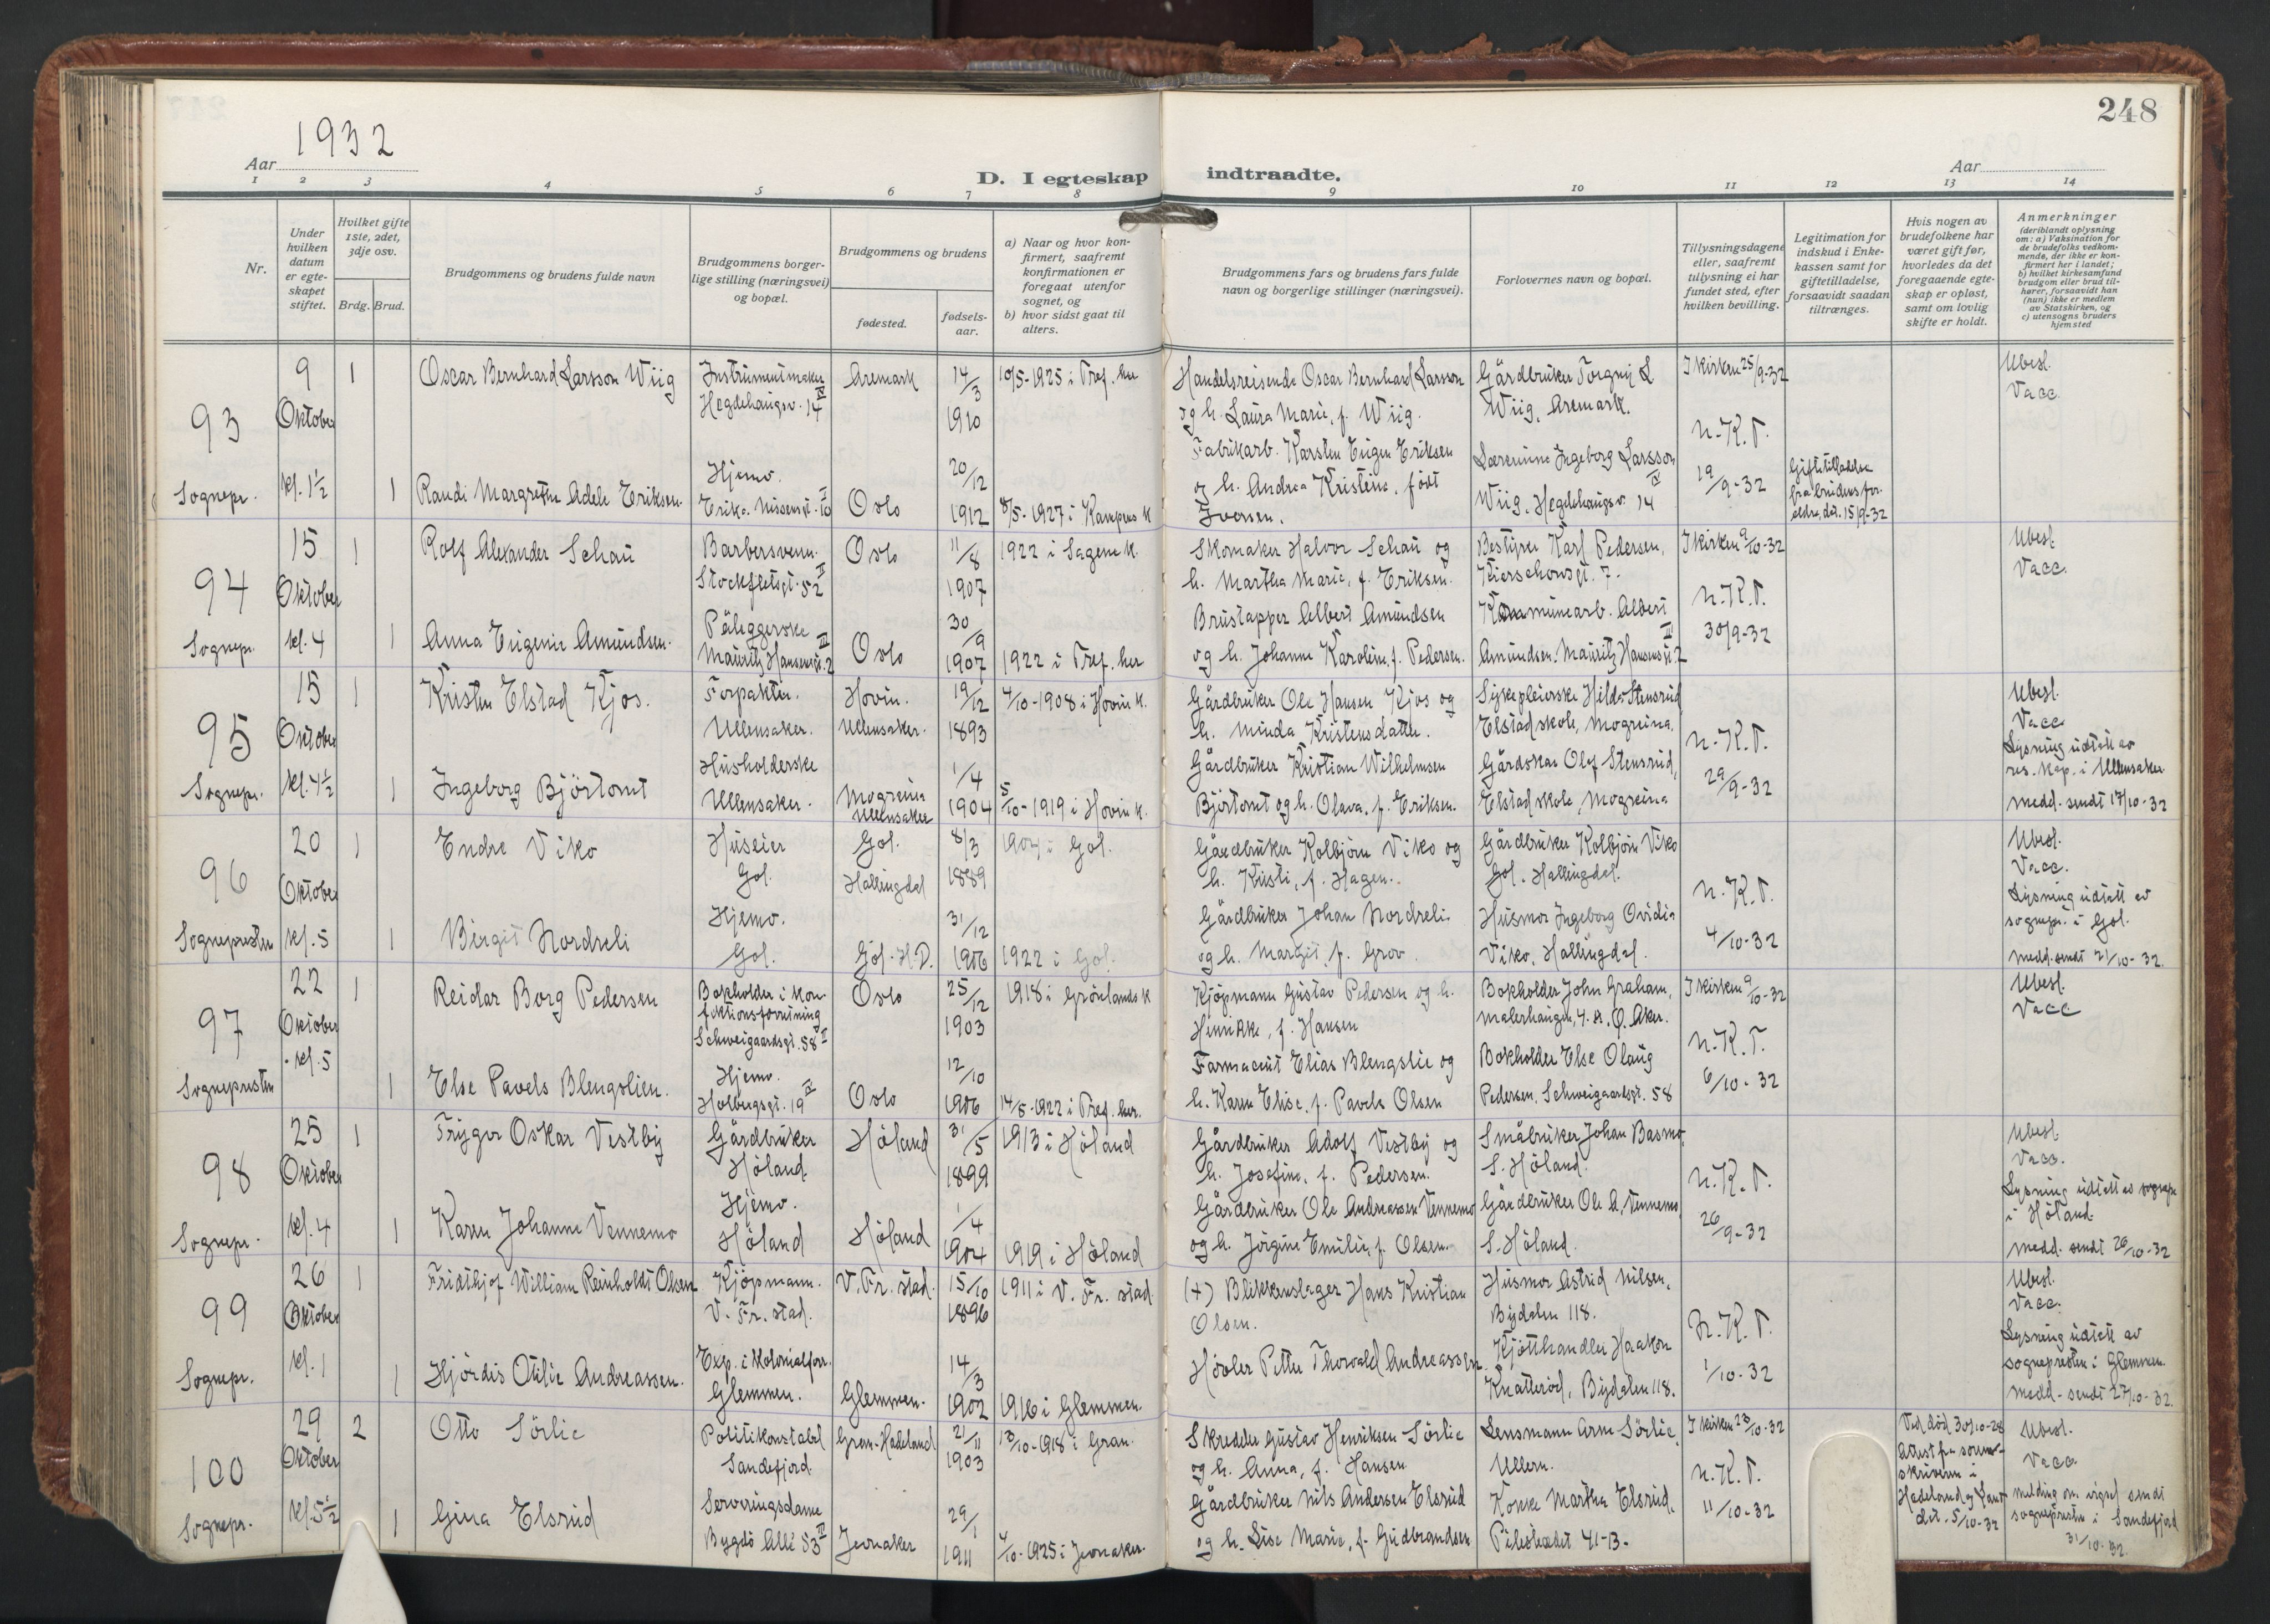 248
1932
Aar
Aar
D. I egteskap indtraadte.
1 2 3 4 5 6 7 8 9 10 11 12 13 14
Nr.
Under hvilken datum er egteskapet stiftet.
Hvilket gifte 1ste, 2det, 3dje osv.
Brdg. Brud.
Brudgommens og brudens fulde navn
Brudgommens borgerlige stilling (næringsvei) og bopæl.
Brudgommens og brudens
fødested.
fødselsaar.
a) Naar og hvor konfirmert, saafremt konfirmationen er foregaat utenfor sognet, og
b) hvor sidst gaat til alters.
Brudgommens fars og brudens fars fulde navn og borgerlige stillinger (næringsvei).
Forlovernes navn og bopæl.
Tillysningsdagene eller, saafremt tillysning ei har fundet sted, efter hvilken bevilling.
Legitimation for indskud i Enkekassen samt for giftetilladelse, forsaavidt saadan tiltrænges.
Hvis nogen av brudefolkene har været gift før, hvorledes da det foregaaende egteskap er opløst, samt om lovlig skifte er holdt.
Anmerkninger (deriblandt oplysning om: a) Vaksination for de brudefolks vedkommende, der ikke er konfirmert her i landet; b) hvilket kirkesamfund brudgom eller brud tilhører, forsaavidt han (hun) ikke er medlem av Statskirken, og c) utensogns bruders hjemsted
93 Sognepr.
9 Oktober kl. 1½
1 Oscar Bernhard Larsson Wiig
Instrumentmaker Hegdehaugsv. 14 IV
Aremark 14/3 1910
10/5-1925 i Tref. her
Handelsreisende Oscar Bernhard Larsson og h. Laura Marie, f. Wiig.
Gårdbruker Torgny L Wiig, Aremark.
I kirken 25/9-32
N.K.T. 19/9-32
Ubesl. Vacc.
1 Randi Margrethe Adele Eriksen.
Hjemv. Erika Nissensgt. 10 I
Oslo 20/12 1912
8/5-1927 i Kampens k
Fabrikarb. Karsten Eugen Eriksen og h. Andrea Kristine, født Iversen.
Lærerinne Ingeborg Larsson Wiig, Hegdehaugsv. 14 IV
Giftetilladelse fra brudens foreldre, dat. 15/9-32
94 Sognepr.
15 Oktober kl. 4
1 Rolf Alexander Schau
Barbersvenn. Stockfletsgt. 52 II
Oslo 11/8 1907
1922 i Sagene k.
Skomaker Halvor Schau og h. Martha Marie, f. Eriksen.
Bestyrer Karl Pedersen, Kierschowsgt. 7.
I kirken 9/10-32
N.K.T. 30/9-32
Ubesl. Vacc.
1 Anna Eugenie Amundsen.
Påleggerske Mauritz Hansensgt. 2 III
Oslo 30/9 1907
1922 i Tref. her
Brustapper Albert Amundsen og h. Johanne Karoline, f. Pedersen.
Kommunearb. Albert Amundsen. Mauritz Hansensgt. 2 III
95 Sognepr.
15 Oktober kl. 4½
1 Kristen Elstad Kjos.
Forpakter. Ullensaker.
Hovin. Ullensaker. 19/12 1893
4/10-1908 i Hovin k.
Gårdbruker Ole Hansen Kjos og h. Minda Kristensdatter.
Sykepleierske Hilda Stensrud Elstad skole, Mogreina.
N.K.T. 29/9-32
Ubesl. Vacc. Lysning utstett av res. kap. i Ullensaker medd. sendt 17/10-32
1 Ingeborg Björtomt
Husholderske Ullensaker.
Mogreina Ullensaker 1/4 1904
5/10-1919 i Hovin k.
Gårdbruker Kristian Wilhelmsen Björtomt og h. Olava, f. Eriksen.
Gårdskar Olof Stensrud, Elstad skole, Mogreina
96 Sognepresten
20 Oktober kl. 5
1 Endre Viko
Huseier Gol.
Gol. Hallingdal 8/3 1889
1904 i Gol.
Gårdbruker Kolbjörn Viko og h. Kristi, f. Hagen.
Gårdbruker Kolbjörn Viko Gol. Hallingdal.
N.K.T. 4/10-32
Ubesl. Vacc. Lysning utstett av sognepr. i Gol. medd. sendt 21/10-32.
1 Birgit Nordreli
Hjemv. Gol.
Gol. H.D. 31/12 1906
1922 i Gol.
Gårdbruker Johan Nordreli og h. Margit, f. Grov.
Husmor Ingeborg Ovidia Viko, Hallingdal.
97 Sognepresten
22 Oktober kl. 5
1 Reidar Borg Pedersen
Bokholder i konfektionsforretning Schweigaardsgt. 58 I
Oslo 25/12 1903
1918 i Grönlands k
Kjöpmann Gustav Pedersen og h. Henrikke, f. Hansen
Bokholder John Graham, Malerhaugen, Ö. Aker.
I kirken 9/10-32
N.K.T. 6/10-32
Ubesl. Vacc
1 Else Pavels Blengslien.
Hjemv. Holbergsgt. 19 IV
Oslo 12/10 1906
14/5-1922 i Tref. her.
Farmaceut Elias Blengslie og h. Karen Elise, f. Pavels Olsen
Bokholder Else Olaug Pedersen, Schweigaardsgt. 58
98 Sognepr.
25 Oktober kl. 4
1 Trygve Oskar Vestby
Gårdbruker Höland
Höland 31/5 1899
1913 i Höland
Gårdbruker Adolf Vestby og h. Josefine, f. Pedersen.
Småbruker Johan Basmo, S. Höland.
N.K.T. 26/9-32
Ubesl. Vacc. Lysning utstett av sognepr i Höland. medd. sendt 26/10-32
1 Karen Johanne Vennemo
Hjemv. Höland
Höland 1/4 1904
1919 i Höland
Gårdbruker Ole Andreassen Vennemo og h. Jörgine Emilie, f. Olsen.
Gårdbruker Ole A. Vennemo, S. Höland.
99 Sognepr.
26 Oktober kl. 1
1 Fridthjof William Reinholdt Olsen
Kjöpmann. V. Fr. stad.
V. Fr. stad. 15/10 1896
1911 i V. Fr. stad.
(+) Blikkenslager Hans Kristian Olsen.
Husmor Astrid Nilsen, Bydalen 118.
N.K.T. 1/10-32
Ubesl. Vacc. Lysning utstett av sognepresten i Glemmen. medd. sendt 27/10-32.
1 Hjördis Otilie Andreassen.
Exp. i Kolonialforr. Glemmen.
Glemmen. 14/3 1902
1916 i Glemmen.
Hövler Petter Thorvald Andreassen
Kjötthandler Haakon Knatteröd, Bydalen 118.
100 Sognepr.
29 Oktober kl. 5½
2 Otto Sörlie
Politikonstabel Sandefjord.
Gran-Hadeland 21/11 1903
13/10-1918 i Gran.
Skredder Gustav Henriksen Sörlie og h. Anna, f. Hansen
Lensmann Arne Sörlie, Ullern.
I kirken 23/10-32
N.K.T. 11/10-32
Ved död 30/10-28 Attest fra sorenskriveren i Hadeland og Land dat. 5/10-32
Ubesl. Vacc. melding om vigsel sendt sognepresten i Sandefjord 31/10-32.
1 Gina Elsrud
Serveringsdame Bygdö Allé 53 III
Jevnaker 29/1 1911
4/10-1925 i Jevnaker.
Gårdbruker Nils Andersen Elsrud og h. Lise Marie, f. Gudbrandsen
Kokke Martha Elsrud, Pilestrædet 41-B.